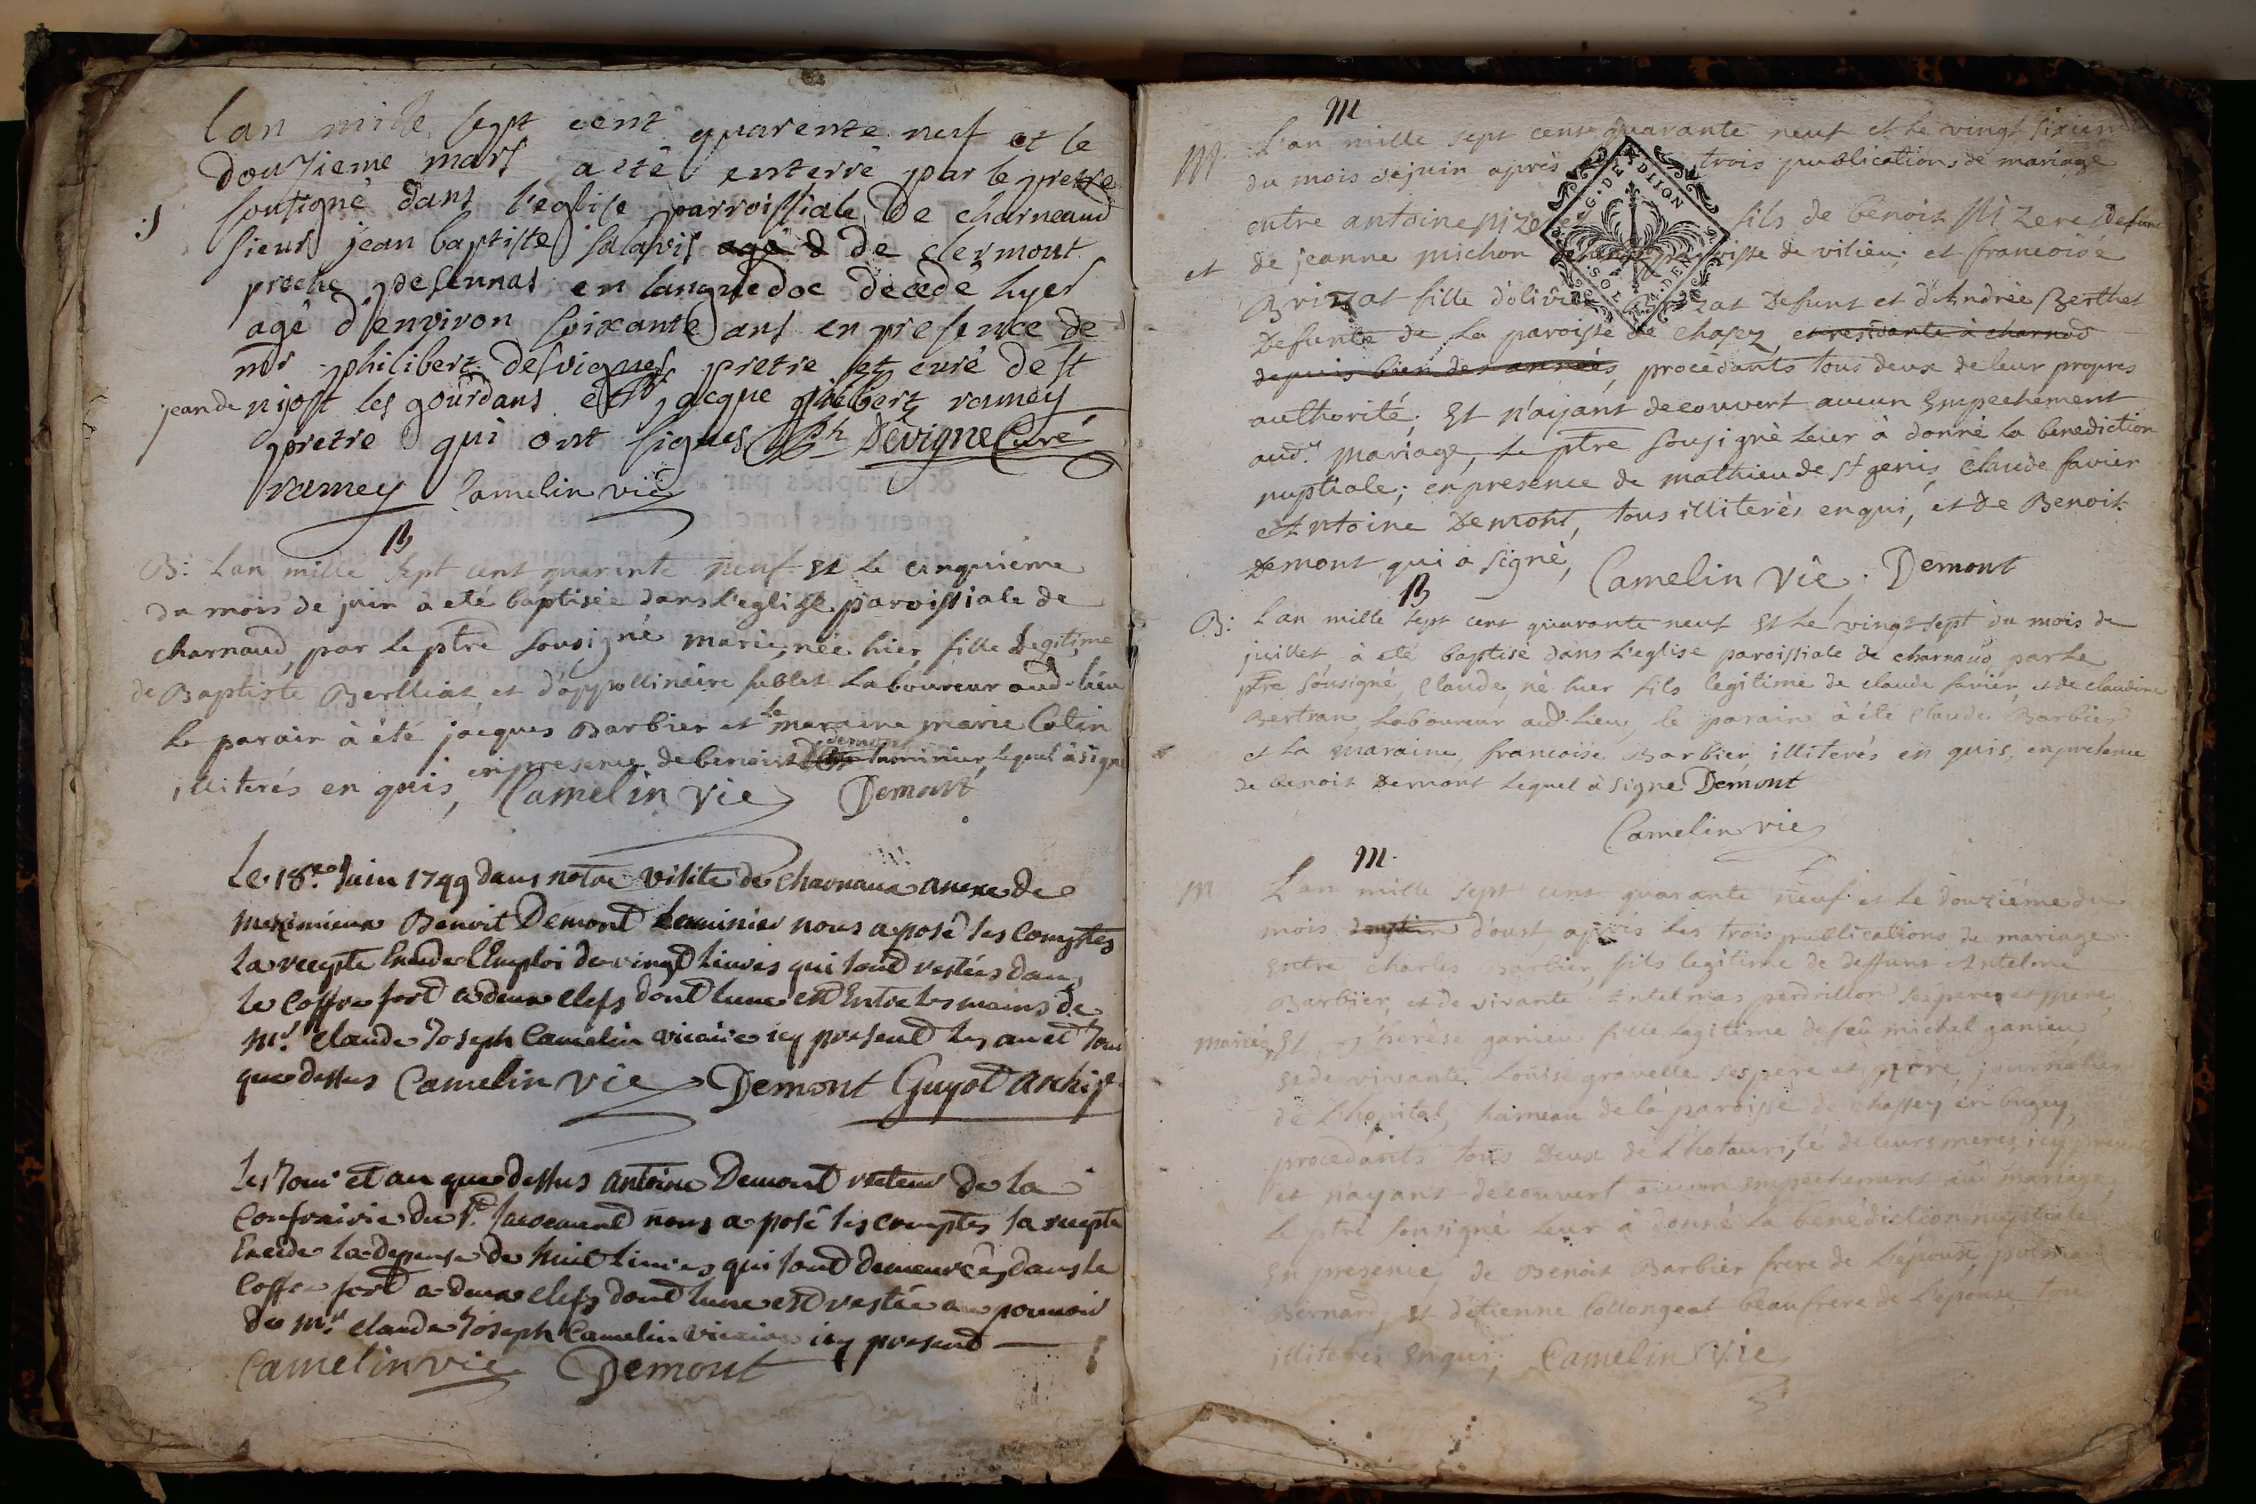 lan mille sept cent quarente neuf et le
douzieme mars a eté enterré par le pretre
soutigné dans l'eglise parroissiale de charneaud
sieur jean baptiste salavis agé d de clermont
proche pesennas en languedoc decedé hyer
agé d'environ soixante ans en presence de
mr philibert desvignes pretre et curé de st
jean de niost les gourdans et jacque philibert ramey
pretre qui ont signés Ph Devigne Curé
ramey Camelin vic
B
B: Lan mille sept cent quarante neuf et le cinquiéme
du mois de juin à eté baptisée dans l'eglise paroissiale de
charnaud, par le ptre sousigné marie, née hier fille legitime
de Baptiste Berlliat, et d'appollinaire sublet laboureur aud. lieu
le parain à été jacques Barbier et la maraine marie Cotin
en presence de benoist demont luminier, lequel à signé
illiterés en quis, Camelin vic Demont
Le 18e Juin 1749 dans notre visite de charnaux anexe de
meximieux Benoit Demont Luminier nous a posé ses Comptes
la recepte Excede l'Emploi de vingt livres qui sont restées dans
le Coffre fort a deux clefs dont lune est Entre les mains de
Mr. Claude Joseph Camelin vicaire icy present les an et Jour
que dessus Camelin vic Demont Guyot Archip.
Les Jour et an que dessus antoine Demont recteur de la
Confrairie du St. Sacrement nous a posé ses comptes la recepte
Excede la depense de huit livres qui sont demeurées dans le
Coffre fort a deux clefs dont lune est restée au pouvoir
de Mr. Claude Joseph Camelin vicaire icy present
Camelin vic Demont
M
M L'an mille sept cent quarante neuf et le vingt sixiem
du mois de juin après trois publications de mariage
entre antoine pizere fils de benoit Pizere defunt
et de jeanne michon paroisse de vilieu; et francoise
Brizat fille d'olivier Brizat Defunt et d'Andrée Berthet
Defunte de la paroisse de Chasey, et residante à charnod
depuis bien des années, procédants tous deux de leur propres
authorité; Et n'ayant decouvert aucun Empechement
aud. mariage, le ptre sousigné leur à donné la benediction
nuptiale; en presence de mathieu de st genis, Claude favier
Antoine Demont, tous illiterés enqui, et de Benoit
Demont qui a signé, Camelin Vic. Demont
B
B: Lan mille sept cent quarante neuf et le vingt sept du mois de
juillet à eté baptisé dans l'eglise paroissiale de charnaud par le
ptre sousigné, Claude, né hier fils legitime de claude favier, et de claudine
Bertran, laboureur aud. lieu, le parain à été Claude Barbier
et la maraine, francoise Barbier, illiterés en quis, en presence
de benoit Demont lequel à signé Demont
Camelin vic
M.
M Lan mille sept cent quarante neuf et le douziéme du
mois d'oust aprés les trois publications de mariage
entre charles Barbier, fils legitime de deffunt Antelme
Barbier, et de vivante Antelmas perdrillon ses pere et mere,
mariés Et Therése ganieu fille legitime de feû michel ganieu,
et de vivante Loüise gravelle ses pere et mére, journalier
de l'hopital, hameau de la paroisse de chassey en bugey,
procedants tous Deux de l'hotaurité de leurs meres, icy
et nayant decouvert aucun empechement au mariage,
Le ptre sousigné leur à donné la benédiction nuptiale
En presence, de Benoit Barbier frere de l'époux,
Bernard, et d'étienne Collongeat beaufrere de l'epouse, tous
illiterés Enqui, Camelin Vic